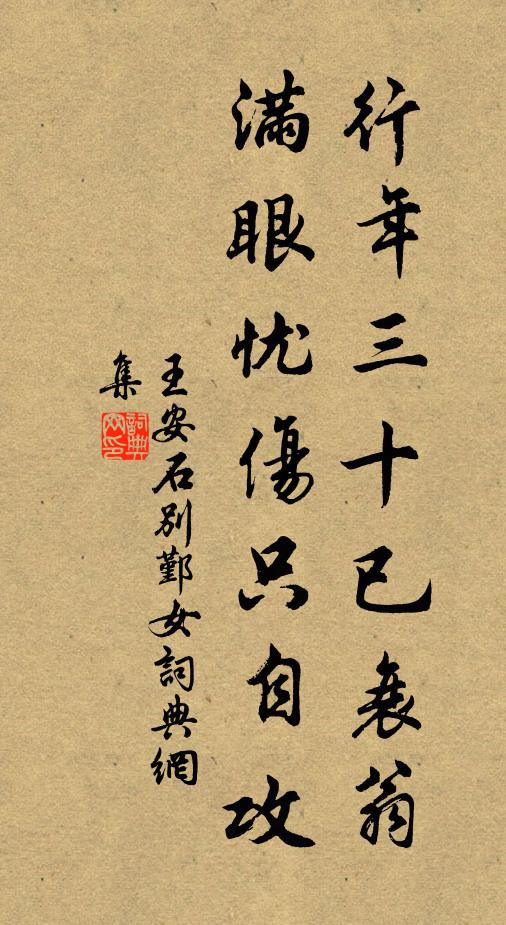 行年三十已衰翁
满眼忧傷只自攻
王安石别鄞女詞典網
集
詞典網印